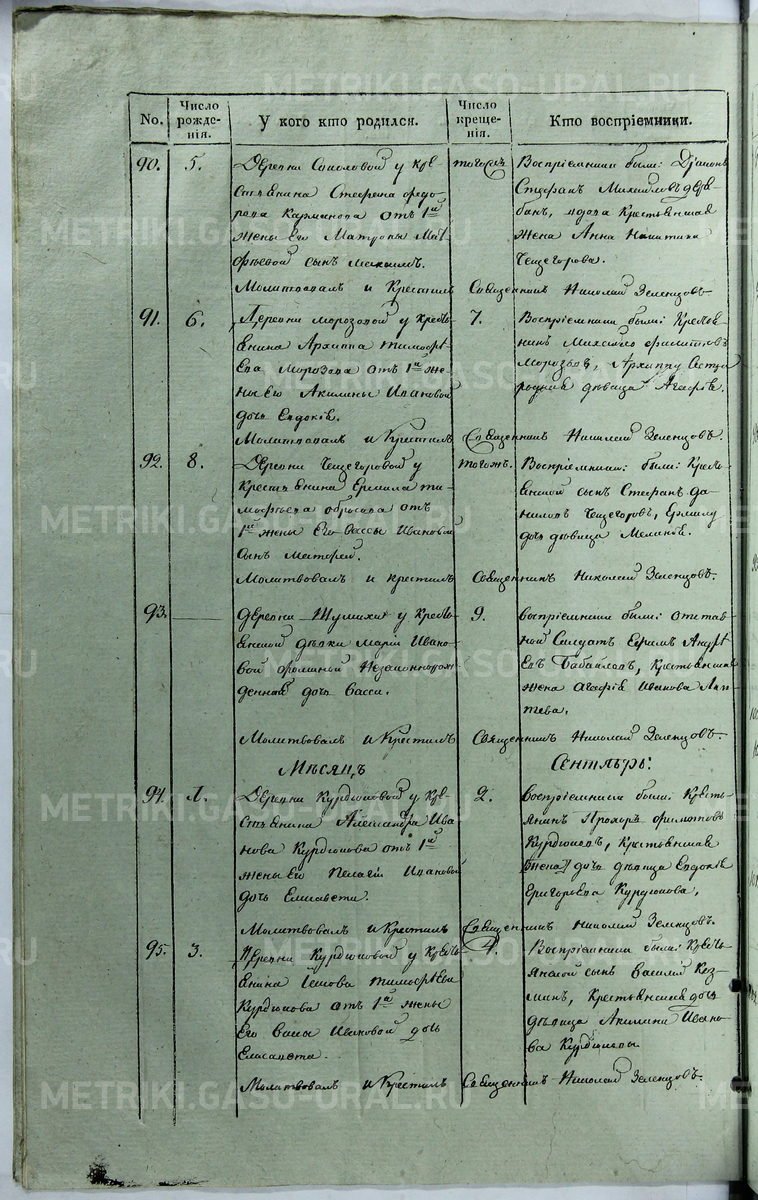 No.
Число рожде-нія.
У кого кто родился.
Число креще-нія.
Кто воспріемники.
90.
5.
Деревни Соколовой у кре
стьянина Стефана Федо
рова Карминова отъ 1й
жены его Матроны Мат
фѣевой сынъ Максимъ.
тогожъ
Воспріемники были: Дьяконъ
Стефанъ Михайловъ
вдова Крестьянская
жена Анна Никитина
Чещегорова.
Молитвовалъ и Крестилъ Священникъ Николай Зеленцовъ.
91.
6.
Деревни Морозовой у кресть
янина Архиппа Тимофѣ
ева Морозова отъ 1й же
ны его Акилины Ивановой
дочь Евдокія.
7.
Воспріемники были: Кресть
нинъ Михайло Филиповъ
Морозовъ, Архиппу сестра
родная дѣвица Агафія.
Молитвовалъ и Крестилъ Священникъ Николай Зеленцовъ.
92.
8.
Деревни Чещегоровой у
крестьянина Ермила Ти
мофѣева Обросова отъ
1й жены его Вассы Ивановой
сынъ Матфей.
тогожъ.
Воспріемники: были: Кресть
янской сынъ Стефанъ Да
ниловъ Чещегоровъ, Ермилу
дочь дѣвица Меланія.
Молитвовалъ и крестилъ Священникъ Николай Зеленцовъ.
93.
деревни Шумихи у кресть
янской дѣвки Маріи Ивано
вой Незаконнорож
денной дочь Васса.
9.
воспріемники были: отстав
ной Солдатъ Ефимъ Андрѣ
евъ Крестьянская
жена Агафія Иванова Лап
тева.
Молитвовалъ и Крестилъ Священникъ Николай Зеленцовъ.
Мѣсяцъ Сентябрь:
94.
1.
Деревни Курдюковой у кре
стьянина Александра Ива
нова Курдюкова отъ 1й
жены его Пелагіи Ивановой
дочь Елисавета.
2.
воспріемники были: Кресть
янинъ Прохоръ Филиповъ
Курдюковъ, Крестьянская
жена дочь дѣвица Евдокія
Григорьева Курдюкова,
Молитвовалъ и Крестилъ Священникъ Николай Зеленцовъ.
95.
3.
Деревни Курдюковой у кресть
янина Іякова Тимофѣева
Курдюкова отъ 1й жены
его Вассы Ивановой дочь
Елисавета.
4.
Воспріемники были: Кресть
янской сынъ Василій Коз
минъ, Крестьянская дочь
дѣвица Акилина Ивано
ва Курдюкова
Молитвовалъ и Крестилъ Священникъ Николай Зеленцовъ.
METRIKI.GASO-URAL.RU